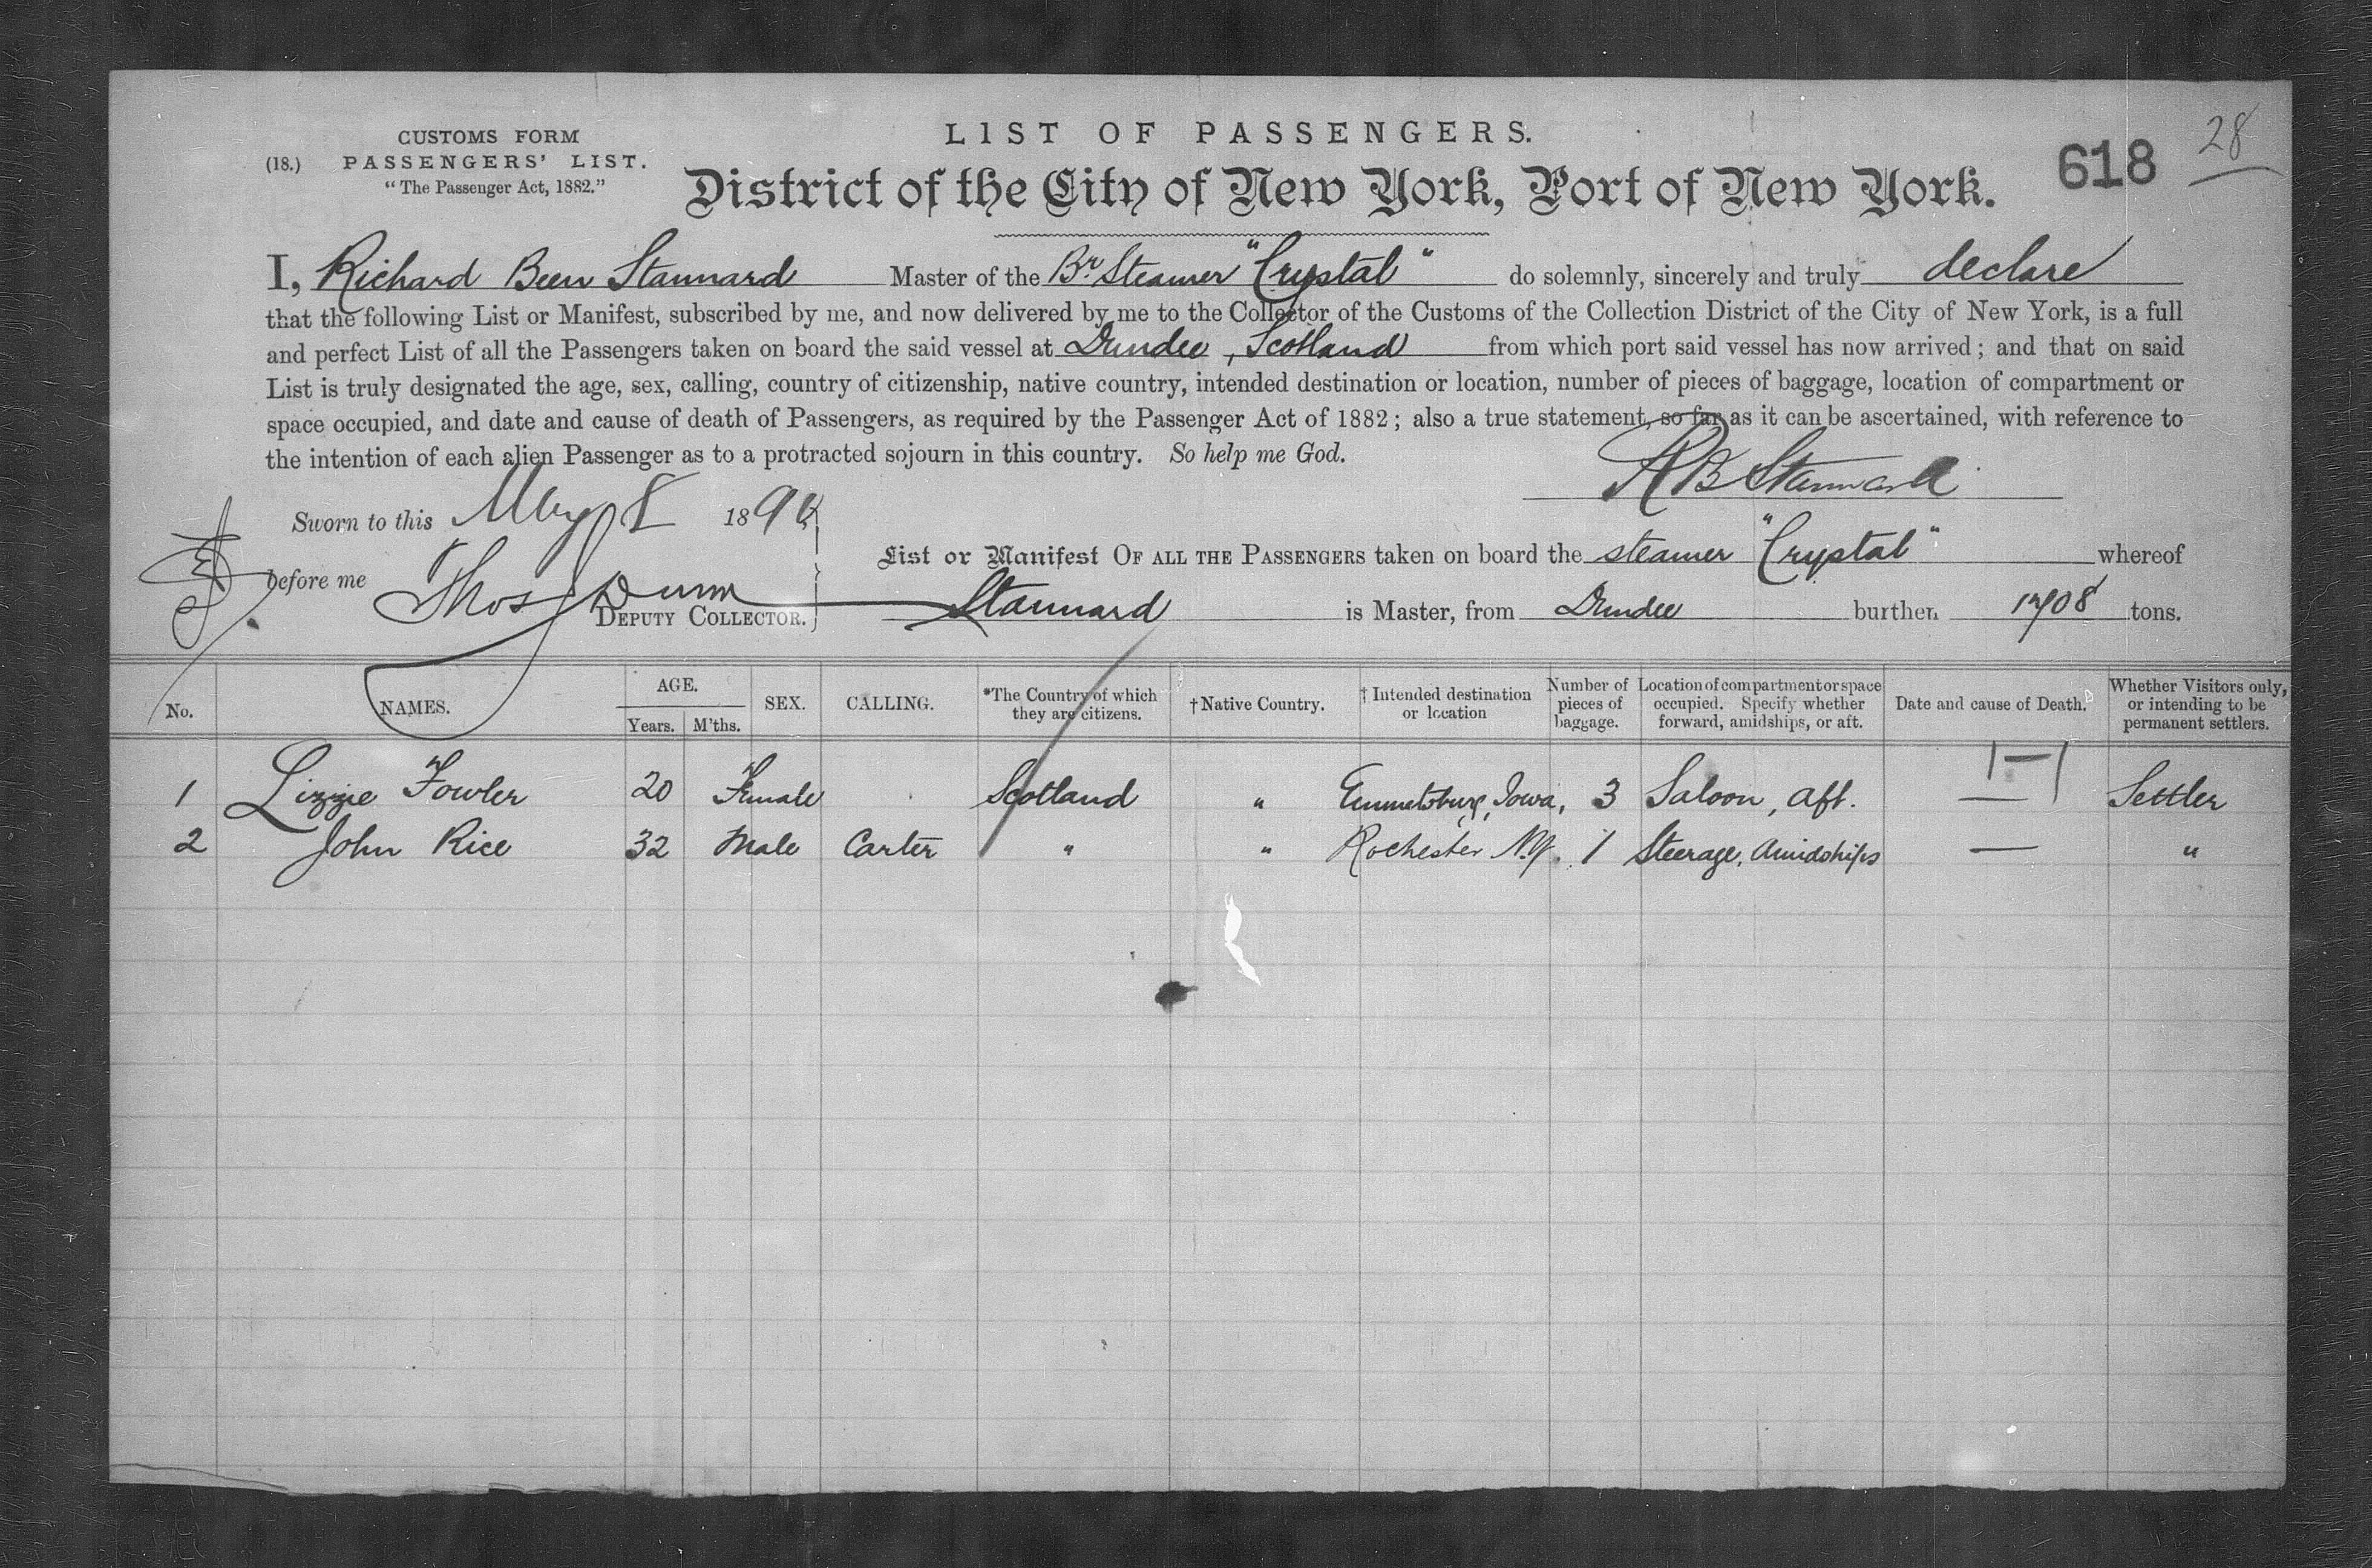 CUSTOMS FORM
(18.) PASSENGERS' LIST.
"The Passenger Act, 1882."
LIST OF PASSENGERS.
618 28
District of the City of New York, Port of New York.
I, Richard Been Stannard Master of the Br Steamer "Crystal" do solemnly, sincerely and truly declare
that the following List or Manifest, subscribed by me, and now delivered by me to the Collector of the Customs of the Collection District of the City of New York, is a full
and perfect List of all the Passengers taken on board the said vessel at Dundee, Scotland from which port said vessel has now arrived; and that on said
List is truly designated the age, sex, calling, country of citizenship, native country, intended destination or location, number of pieces of baggage, location of compartment or
space occupied, and date and cause of death of Passengers, as required by the Passenger Act of 1882; also a true statement, so far as it can be ascertained, with reference to
the intention of each alien Passenger as to a protracted sojourn in this country. So help me God.
RB Stannard
Sworn to this May 8 189
before me Thos J Dunn
DEPUTY COLLECTOR.
List or Manifest OF ALL THE PASSENGERS taken on board the steamer "Crystal" whereof
Stannard is Master, from Dundee burthen 1708 tons.
No. NAMES. AGE. Years. M'ths. SEX. CALLING. *The Country of which they are citizens. †Native Country. †Intended destination or location Number of pieces of baggage. Location of compartment or space occupied. Specify whether forward, amidships, or aft. Date and cause of Death. Whether Visitors only, or intending to be permanent settlers.
1 Lizzie Fowler 20 Female Scotland " Emmetsburg, Iowa, 3 Saloon, aft. — Settler
2 John Rice 32 Male Carter " " Rochester N.Y. 1 Steerage, Amidships — "